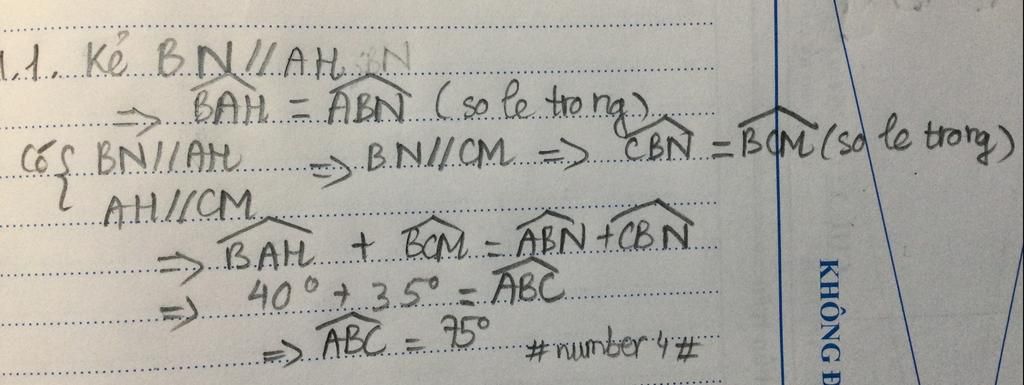 1.1. Kẻ BN//AH
=> BAH = ABN (so le trong)
Có { BN//AH => BN//CM => CBN = BCM (so le trong)
AH//CM
=> BAH + BCM = ABN + CBN
=> 40° + 35° = ABC
=> ABC = 75° #number 4#
KHÔNG